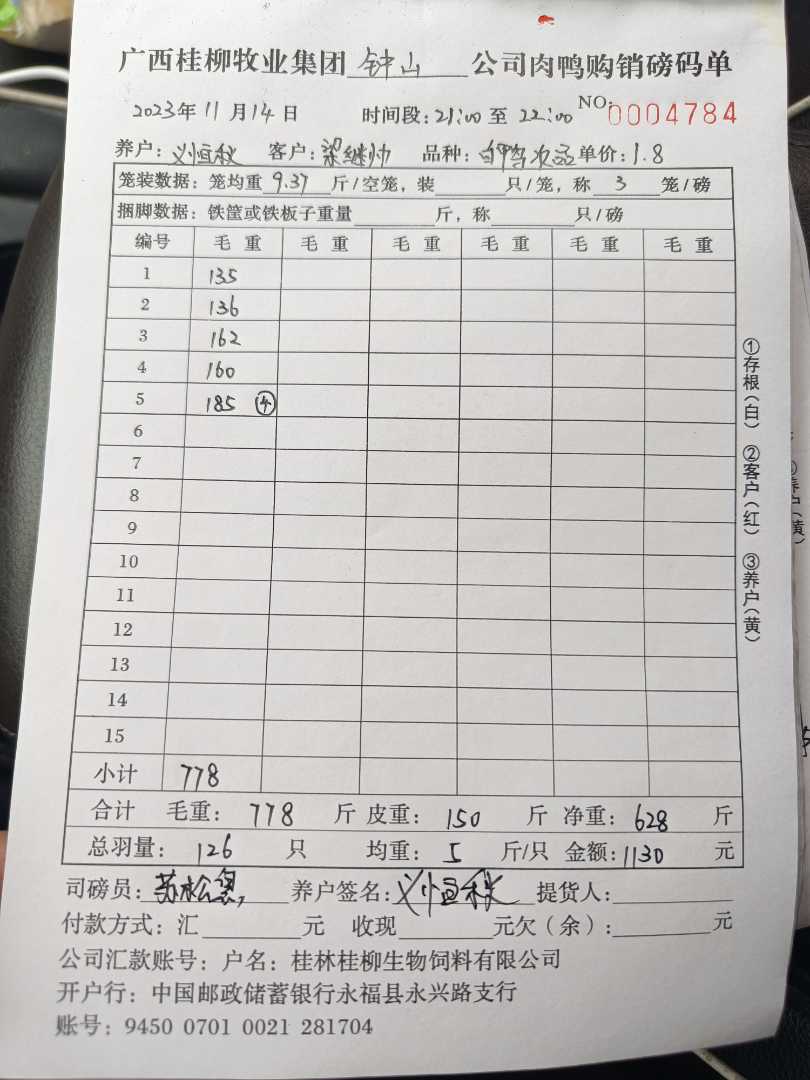 广西桂柳牧业集团 钟山 公司肉鸭购销磅码单
2023年11月14日 时间段:21:00 至 22:00 NO:0004784
养户: 客户:梁继帅 品种: 单价:1.8
笼装数据: 笼均重 9.37 斤/空笼, 装 只/笼, 称 3 笼/磅
捆脚数据: 铁筐或铁板子重量 斤, 称 只/磅
编号 毛重 毛重 毛重 毛重 毛重 毛重
1 135
2 136
3 162
4 160
5 185 ④
6
7
8
9
10
11
12
13
14
15
小计 778
合计 毛重: 778 斤 皮重: 150 斤 净重: 628 斤
总羽量: 126 只 均重: 5 斤/只 金额:1130 元
司磅员: 养户签名: 提货人:
付款方式: 汇 元 收现 元欠(余): 元
公司汇款账号: 户名: 桂林桂柳生物饲料有限公司
开户行: 中国邮政储蓄银行永福县永兴路支行
账号: 9450 0701 0021 281704
①存根(白) ②客户(红) ③养户(黄)